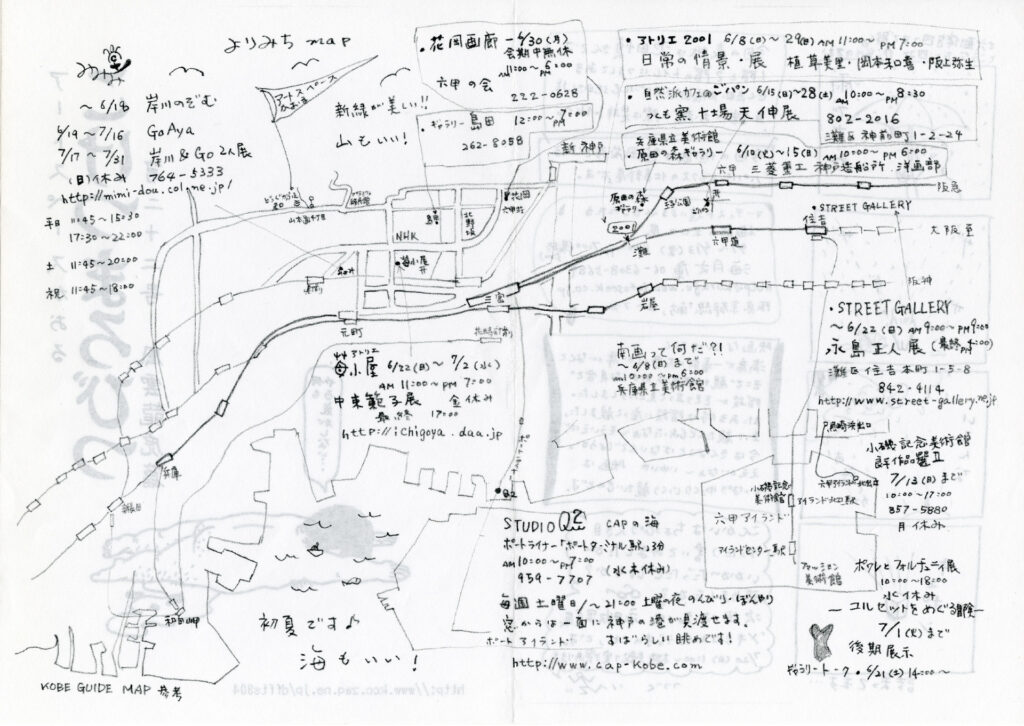 よりみち map
~ 6/18 岸川のぞむ
6/19~7/16 GoAya
7/17~7/31 岸川&Go 2人展
(日)休み 764-5333
http://mimi-dou.colo-ne.jp/
平日 11:45~15:30
17:30~22:00
土 11:45~20:00
祝 11:45~18:00
アートスペース
かおる
新緑が美しい!!
山もいい!
・花岡画廊 ~6/30(月)
会期中無休
AM 11:00~PM 6:00
六甲の会
222-0628
・ギャラリー島田 12:00~PM 7:00
262-8058
・アトリエ2001 6/8(日)~29(日) AM 11:00~PM 7:00
日常の情景・展 植草美里・岡本和喜・阪上弥生
・自然派カフェ@ごパン 6/15(日)~28(土) AM 10:00~8:30
つくも窯 十場天伸展 802-2016
灘区神前町1-2-24
兵庫県立美術館
・原田の森ギャラリー 6/10(火)~15(日) AM 10:00~PM 6:00
三菱重工 神戸造船所 洋画部
新神戸
六甲
阪急
王子公園
原田の森
ギャラリー
2001
灘
六甲道
住吉
・STREET GALLERY
大阪
阪神
岩屋
山本通4丁目
花岡
六甲荘
島田
北野坂
NHK
苺小屋
三宮
元町
花時計前
兵庫
和田岬
・STREET GALLERY
~6/22(日) AM 9:00~PM 9:00
永島正人展 (最終 PM 4:00)
灘区住吉本町1-5-8
842-4114
http://www.street-gallery.ne.jp
南画って何だ?!
~6/8(日)まで
AM 10:00~PM 6:00
兵庫県立美術館
アトリエ
苺小屋 6/22(日)~7/2(水)
AM 11:00~PM 7:00
中東範子展 金休み
最終 17:00
http://ichigoya.daa.jp
魚崎浜出口
小磯記念美術館
良子作品選II
7/13(日)まで
10:00~17:00
857-5880
月休み
小磯記念
美術館
アイランド北口駅
六甲アイランド
アイランドセンター駅
ファッション
美術館
ポワレとフォルチュニィ展
10:00~18:00
水休み
―コルセットをめぐる冒険―
7/1(火)まで
後期展示
ギャラリートーク・6/21(土)14:00~
ポートライナー
Q2
STUDIO Q2 CAPの海
ポートライナー「ポートターミナル駅」3分
AM 10:00~PM 7:00 (水木休み)
959-7707
毎週土曜日/~21:00 土曜の夜 のんびり・ぼんやり
窓からは一面に神戸の港が見渡せます。
すばらしい眺めです!
ポートアイランド
http://www.cap-kobe.com
初夏です♪
海もいい!
KOBE GUIDE MAP 参考